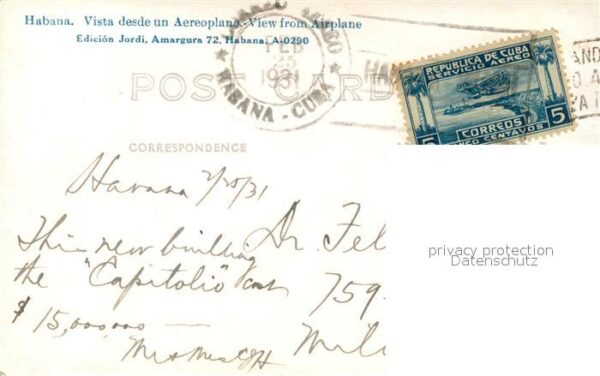 Habana. Vista desde un Aereoplano.-View from Airplane
Edición Jordi, Amargura 72, Habana, A-0290
FEB
1931
HABANA - CUBA
REPUBLICA DE CUBA
SERVICIO AEREO
CORREOS
5 CENTAVOS 5
POST CARD
CORRESPONDENCE
Havana 2/25/31
This new building
the "Capitolio" cost
$15,000,000 —
Dr. Fel
759
Mil
privacy protection
Datenschutz